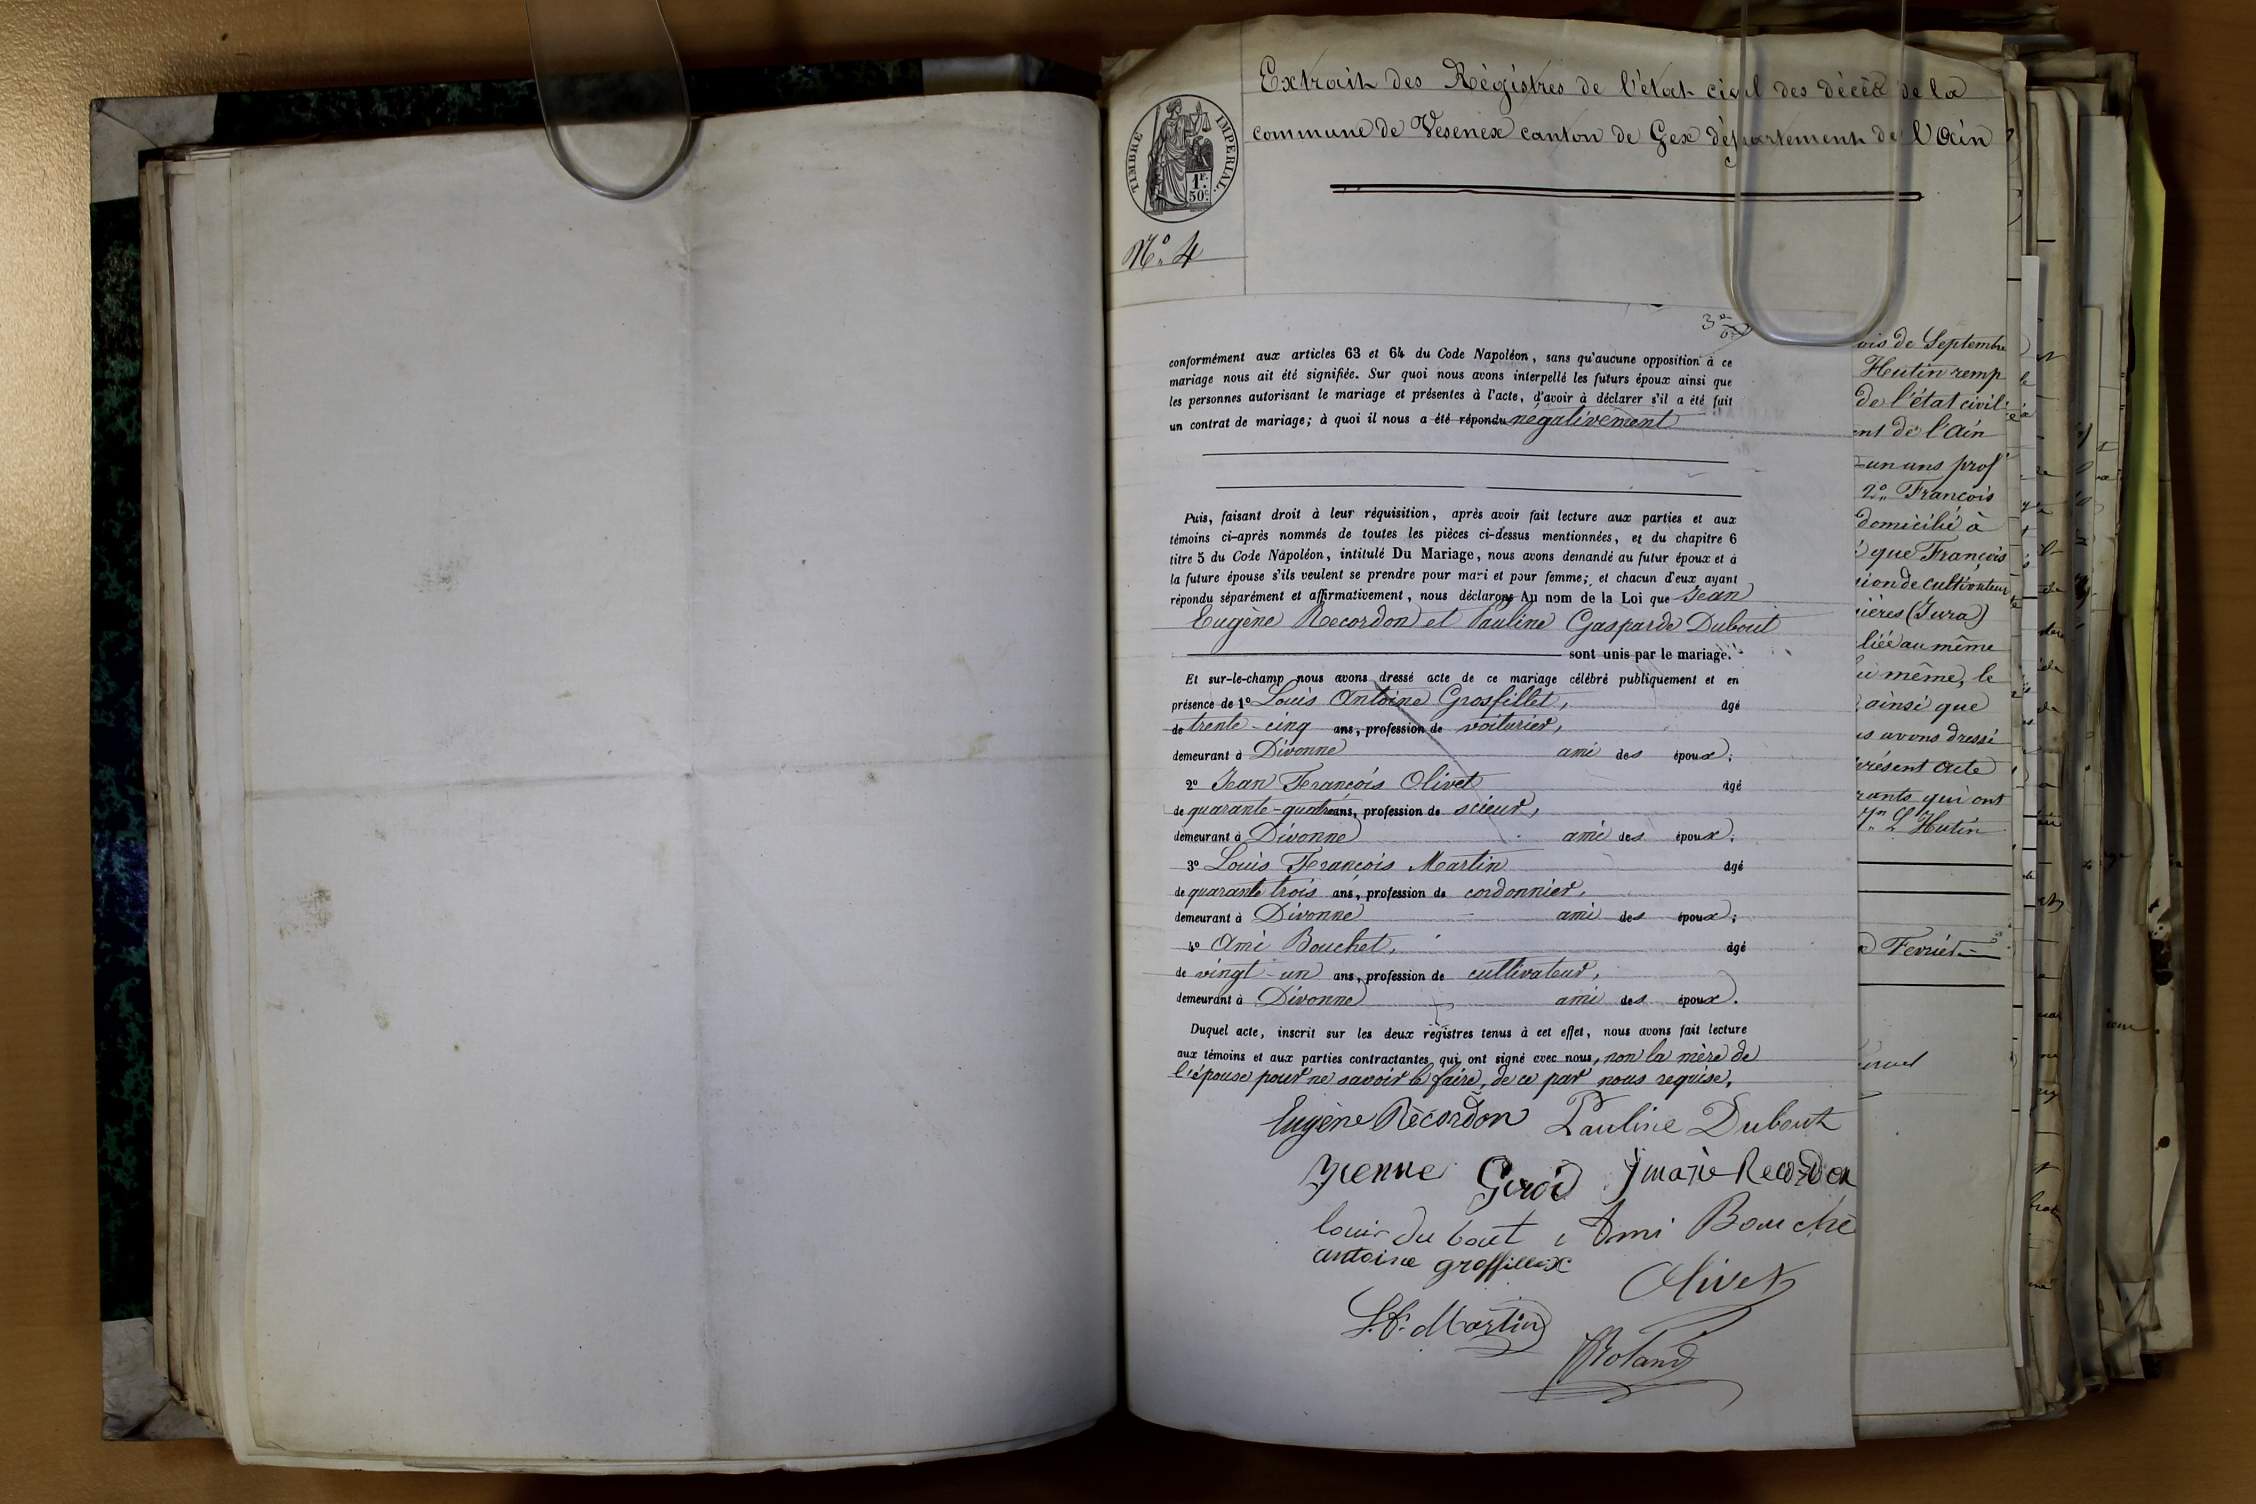 Extrait des Régistres de l'état civil des décès de la
commune de Vesenex canton de Gex département de l'Ain
TIMBRE IMPERIAL.
1F.
50C.
N° 4
3e
conformément aux articles 63 et 64 du Code Napoléon, sans qu'aucune opposition à ce
mariage nous ait été signifiée. Sur quoi nous avons interpellé les futurs époux ainsi que
les personnes autorisant le mariage et présentes à l'acte, d'avoir à déclarer s'il a été fait
un contrat de mariage; à quoi il nous a été répondu négativement
Puis, faisant droit à leur réquisition, après avoir fait lecture aux parties et aux
témoins ci-après nommés de toutes les pièces ci-dessus mentionnées, et du chapitre 6
titre 5 du Code Napoléon, intitulé Du Mariage, nous avons demandé au futur époux et à
la future épouse s'ils veulent se prendre pour mari et pour femme; et chacun d'eux ayant
répondu séparément et affirmativement, nous déclarons Au nom de la Loi que Jean
Eugène Recordon et Pauline Gasparde Dubout
sont unis par le mariage.
Et sur-le-champ nous avons dressé acte de ce mariage célébré publiquement et en
présence de 1° Louis Antoine Grosfillet, âgé
de trente-cinq ans, profession de voiturier,
demeurant à Divonne ami des époux;
2° Jean François Olivet âgé
de quarante-quatre ans, profession de scieur,
demeurant à Divonne ami des époux;
3° Louis François Martin âgé
de quarante trois ans, profession de cordonnier,
demeurant à Divonne ami des époux;
4° Ami Bouchet, âgé
de vingt-un ans, profession de cultivateur,
demeurant à Divonne ami des époux.
Duquel acte, inscrit sur les deux registres tenus à cet effet, nous avons fait lecture
aux témoins et aux parties contractantes qui ont signé avec nous, non la mère de
l'épouse pour ne savoir le faire, de ce par nous requise.
Eugène Recordon Pauline Dubout
Girod J marie Recordon
louis du bout Ami Bouché
antoine groffillex
Olivet
L. F. Martin
Roland
ois de Septembre
Hutin remp
de l'état civil
ent de l'Ain
un ans prof
2° François
domicilié à
que François
sion de cultivateur
ières (Jura)
liée au même
ui même, le
ainsi que
us avons dressé
présent acte
rants qui ont
Hutin
Fevrier